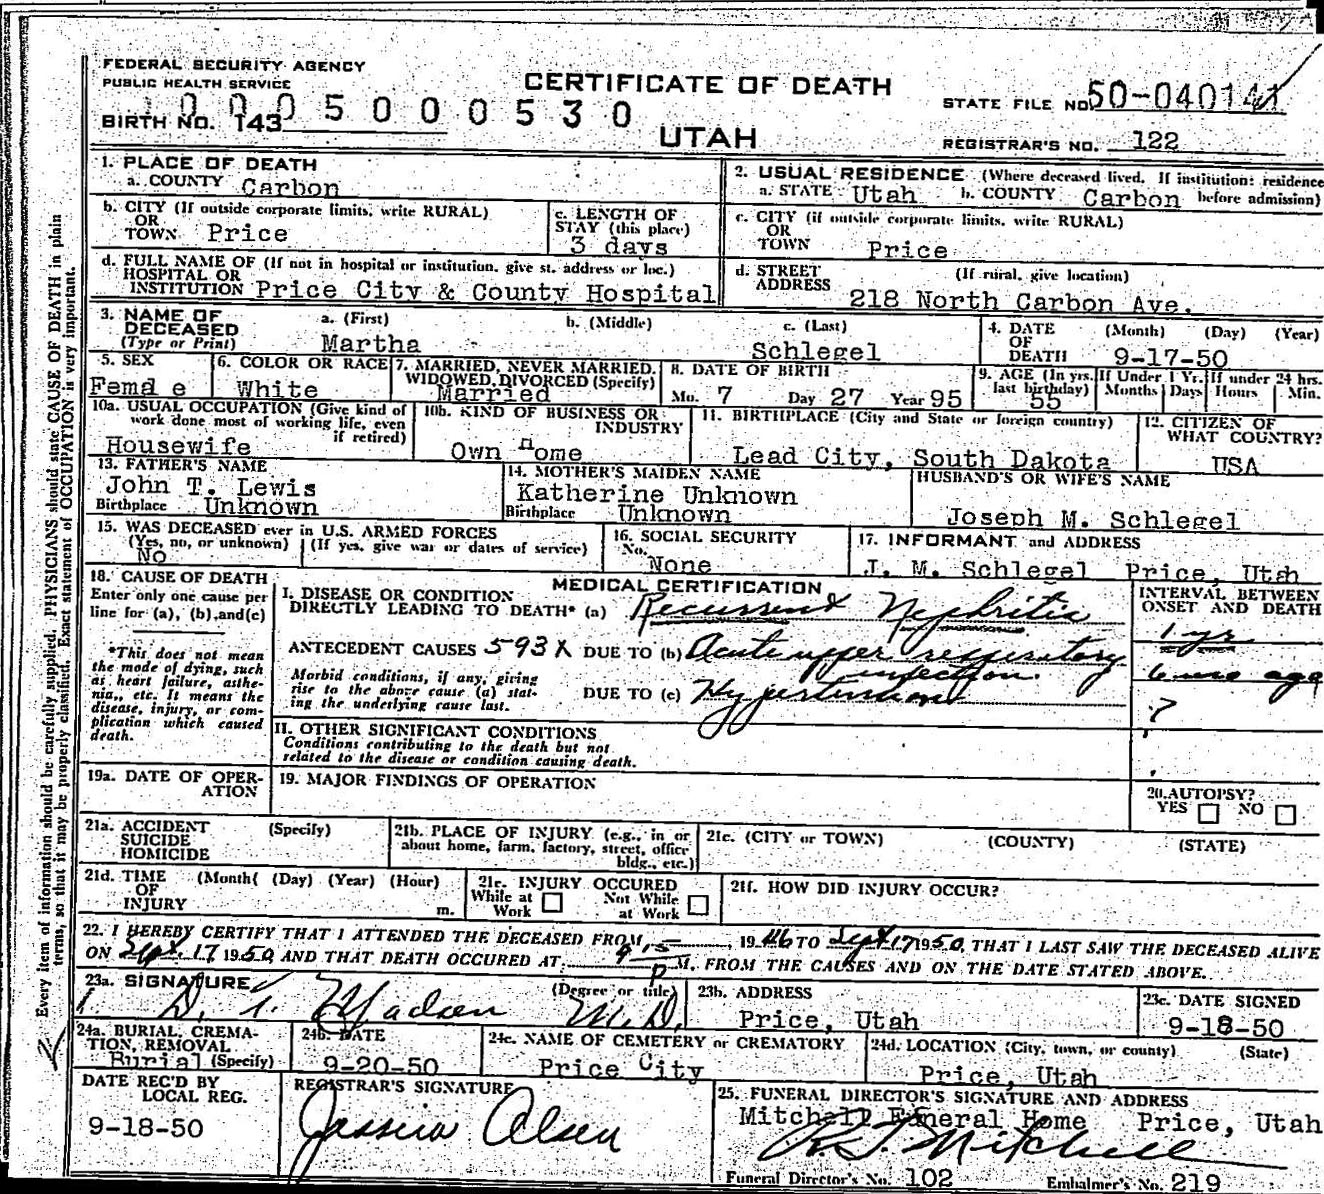 FEDERAL SECURITY AGENCY
PUBLIC HEALTH SERVICE
CERTIFICATE OF DEATH
STATE FILE NO. 50-040141
0005000530
BIRTH NO. 143
UTAH
REGISTRAR'S NO. 122
1. PLACE OF DEATH
a. COUNTY Carbon
2. USUAL RESIDENCE (Where deceased lived. If institution: residence before admission)
a. STATE Utah b. COUNTY Carbon
b. CITY (If outside corporate limits, write RURAL)
OR
TOWN Price
c. LENGTH OF
STAY (this place)
3 days
c. CITY (if outside corporate limits, write RURAL)
OR
TOWN Price
d. FULL NAME OF (If not in hospital or institution, give st. address or loc.)
HOSPITAL OR
INSTITUTION Price City & County Hospital
d. STREET (If rural, give location)
ADDRESS 218 North Carbon Ave.
3. NAME OF
DECEASED
(Type or Print)
a. (First) b. (Middle) c. (Last)
Martha Schlegel
4. DATE (Month) (Day) (Year)
OF
DEATH 9-17-50
5. SEX
Female
6. COLOR OR RACE
White
7. MARRIED, NEVER MARRIED,
WIDOWED, DIVORCED (Specify)
Married
8. DATE OF BIRTH
Mo. 7 Day 27 Year 95
9. AGE (In yrs.
last birthday)
55
If Under 1 Yr.
Months Days
If under 24 hrs.
Hours Min.
10a. USUAL OCCUPATION (Give kind of
work done most of working life, even
if retired)
Housewife
10b. KIND OF BUSINESS OR
INDUSTRY
Own Home
11. BIRTHPLACE (City and State or foreign country)
Lead City, South Dakota
12. CITIZEN OF
WHAT COUNTRY?
USA
13. FATHER'S NAME
John T. Lewis
Birthplace Unknown
14. MOTHER'S MAIDEN NAME
Katherine Unknown
Birthplace Unknown
HUSBAND'S OR WIFE'S NAME
Joseph M. Schlegel
15. WAS DECEASED ever in U.S. ARMED FORCES
(Yes, no, or unknown) (If yes, give war or dates of service)
No
16. SOCIAL SECURITY
No.
None
17. INFORMANT and ADDRESS
J. M. Schlegel Price, Utah
18. CAUSE OF DEATH
Enter only one cause per
line for (a), (b), and (c)
*This does not mean
the mode of dying, such
as heart failure, asthe-
nia, etc. It means the
disease, injury, or com-
plication which caused
death.
MEDICAL CERTIFICATION
I. DISEASE OR CONDITION
DIRECTLY LEADING TO DEATH* (a) Recurrent Nephritis
INTERVAL BETWEEN
ONSET AND DEATH
1 yr
ANTECEDENT CAUSES 593X DUE TO (b) Acute upper respiratory
infection.
6 mo ago
Morbid conditions, if any, giving
rise to the above cause (a) stat-
ing the underlying cause last.
DUE TO (c) Hypertension
?
II. OTHER SIGNIFICANT CONDITIONS
Conditions contributing to the death but not
related to the disease or condition causing death.
19a. DATE OF OPER-
ATION
19. MAJOR FINDINGS OF OPERATION
20. AUTOPSY?
YES NO
21a. ACCIDENT (Specify)
SUICIDE
HOMICIDE
21b. PLACE OF INJURY (e.g., in or
about home, farm, factory, street, office
bldg., etc.)
21c. (CITY or TOWN) (COUNTY) (STATE)
21d. TIME (Month) (Day) (Year) (Hour)
OF
INJURY m.
21e. INJURY OCCURED
While at Work Not While at Work
21f. HOW DID INJURY OCCUR?
22. I HEREBY CERTIFY THAT I ATTENDED THE DECEASED FROM 1946 TO Sept 17 1950, THAT I LAST SAW THE DECEASED ALIVE
ON Sept. 17 1950, AND THAT DEATH OCCURED AT 9 15 P M. FROM THE CAUSES AND ON THE DATE STATED ABOVE.
23a. SIGNATURE (Degree or title)
Madsen M.D.
23b. ADDRESS
Price, Utah
23c. DATE SIGNED
9-18-50
24a. BURIAL, CREMA-
TION, REMOVAL
Burial (Specify)
24b. DATE
9-20-50
24c. NAME OF CEMETERY or CREMATORY
Price City
24d. LOCATION (City, town, or county) (State)
Price, Utah
DATE REC'D BY
LOCAL REG.
9-18-50
REGISTRAR'S SIGNATURE
Jessica Olsen
25. FUNERAL DIRECTOR'S SIGNATURE AND ADDRESS
Mitchell Funeral Home Price, Utah
Mitchell
Funeral Director's No. 102 Embalmer's No. 219
Every item of information should be carefully supplied. PHYSICIANS should state CAUSE OF DEATH in plain
terms, so that it may be properly classified. Exact statement of OCCUPATION is very important.